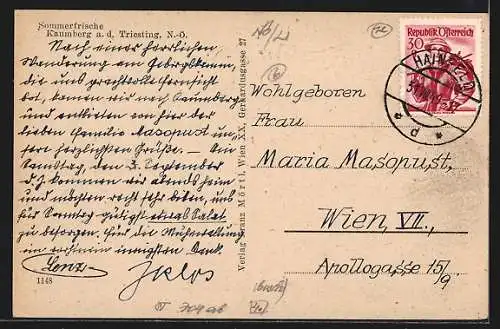 Sommerfrische
Kaumberg a. d. Triesting, N.-Ö.
Nach einer herrlichen
Wanderung am Gebirgskamm,
die uns prachtvolle Fernsicht
bot, kamen wir nach Kaumberg
und entbieten von hier der
lieben Familie Masopust un-
sere herzlichsten Grüße. - Am
Samstag, den 3. September
d. J. kommen wir abends heim
und möchten recht sehr bitten, uns
für Sonntag gütigst etwas Salat
zu besorgen. Für die Mühewaltung
im vorhinein innigsten Dank.
Lenz
1148
Verlag Franz Mörtl, Wien XX, Gerhardusgasse 27
Wohlgeboren
Frau
Maria Masopust,
Wien, VII.,
Apollogasse 15/9.
Republik Österreich
30
HAINFELD